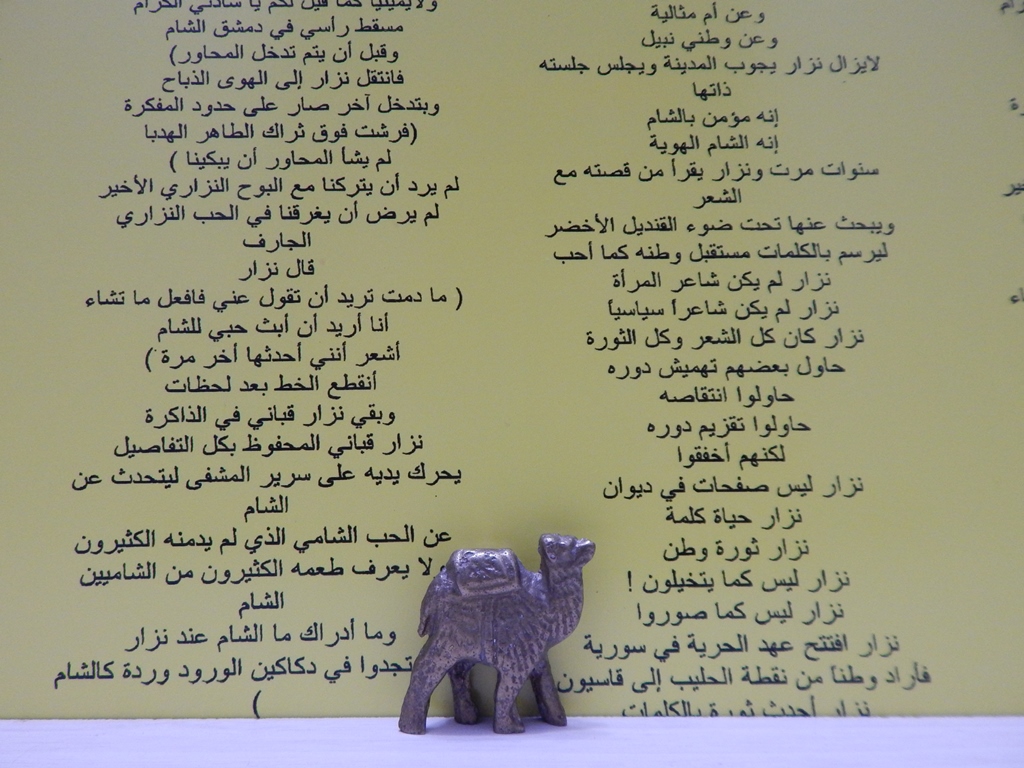 وعن أم مثالية
وعن وطني نبيل
لايزال نزار يجوب المدينة ويجلس جلسته
ذاتها
إنه مؤمن بالشام
إنه الشام الهوية
سنوات مرت ونزار يقرأ من قصته مع
الشعر
ويبحث عنها تحت ضوء القنديل الأخضر
ليرسم بالكلمات مستقبل وطنه كما أحب
نزار لم يكن شاعر المرأة
نزار لم يكن شاعراً سياسياً
نزار كان كل الشعر وكل الثورة
حاول بعضهم تهميش دوره
حاولوا انتقاصه
حاولوا تقزيم دوره
لكنهم أخفقوا
نزار ليس صفحات في ديوان
نزار حياة كلمة
نزار ثورة وطن
نزار ليس كما يتخيلون !
نزار ليس كما صوروا
نزار افتتح عهد الحرية في سورية
فأراد وطناً من نقطة الحليب إلى قاسيون
نزار أحدث ثورة بالكلمات
ولايمينيا كما قيل لكم يا سادتي الكرام
مسقط رأسي في دمشق الشام
وقبل أن يتم تدخل المحاور)
فانتقل نزار إلى الهوى الذباح
وبتدخل آخر صار على حدود المفكرة
(فرشت فوق ثراك الطاهر الهدبا
لم يشأ المحاور أن يبكينا )
لم يرد أن يتركنا مع البوح النزاري الأخير
لم يرض أن يغرقنا في الحب النزاري
الجارف
قال نزار
( ما دمت تريد أن تقول عني فافعل ما تشاء
أنا أريد أن أبث حبي للشام
أشعر أنني أحدثها أخر مرة )
أنقطع الخط بعد لحظات
وبقي نزار قباني في الذاكرة
نزار قباني المحفوظ بكل التفاصيل
يحرك يديه على سرير المشفى ليتحدث عن
الشام
عن الحب الشامي الذي لم يدمنه الكثيرون
ولا يعرف طعمه الكثيرون من الشاميين
الشام
وما أدراك ما الشام عند نزار
تجدوا في دكاكين الورود وردة كالشام
)